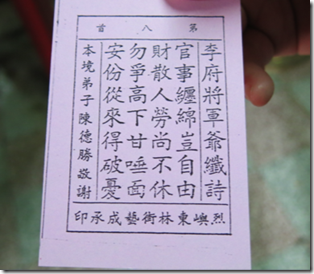 第八首
李府將軍爺籤詩
官事纏綿豈自由
財散人勞尚不休
勿爭高下甘唾面
安份從來得破憂
本境弟子陳德勝敬謝
烈嶼東林街藝成承印